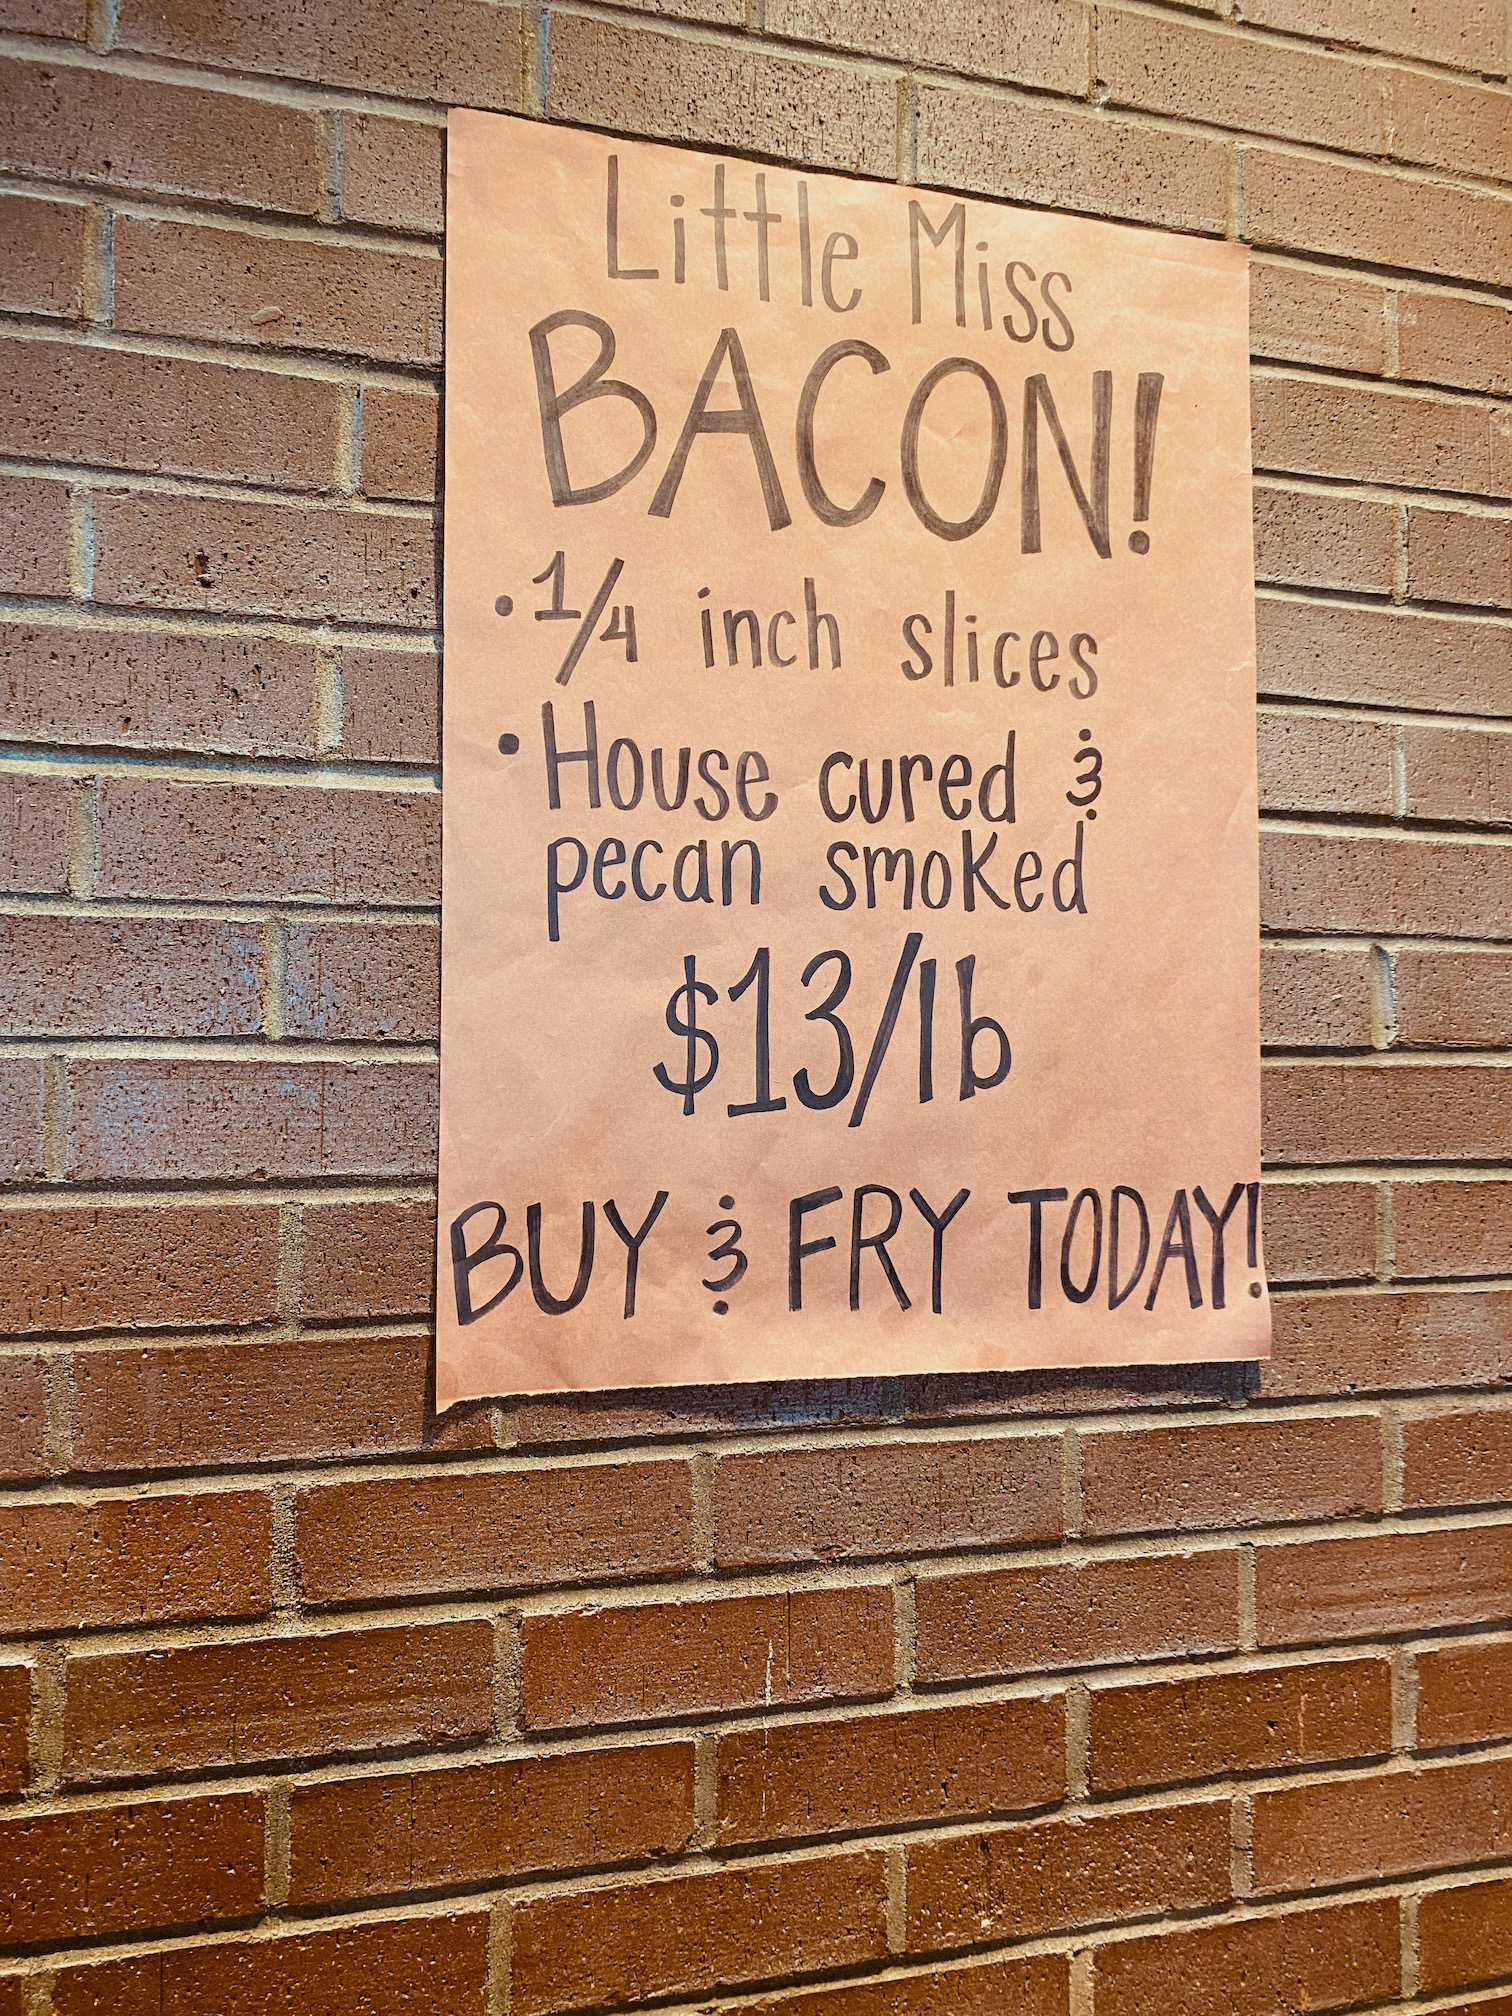 Little Miss
BACON!
• 1/4 inch slices
• House cured &
pecan smoked
$13/lb
BUY & FRY TODAY!